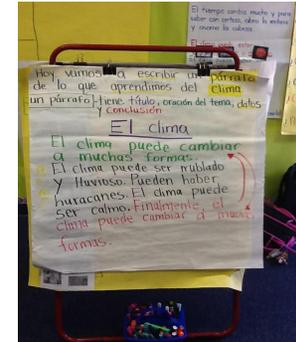 El tiempo cambia mucho y para
saber con certeza, abro la ventana
y asomo la cabeza.
Hoy vamos a escribir un párrafo
de lo que aprendimos del clima
un párrafo tiene título, oración del tema, datos
y conclusión
El clima
El clima puede cambiar
a muchas formas.
El clima puede ser nublado
y lluvioso. Pueden haber
huracanes. El clima puede
ser calmo. Finalmente, el
clima puede cambiar a muchas
formas.